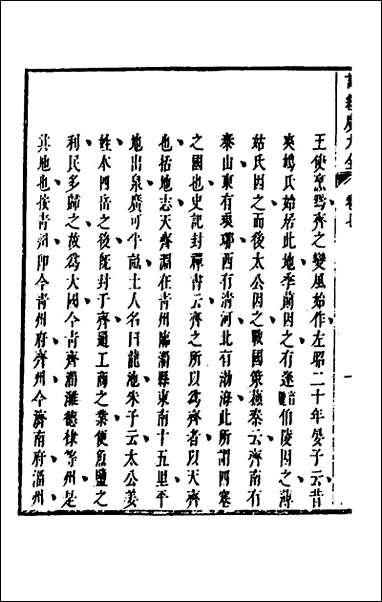 詩經廣大全 卷七 一
王使烹焉齊之變風始作左昭二十年晏子云昔
爽鳩氏始居此地季萴因之有逢伯陵因之薄
姑氏因之而後太公因之戰國策蘇秦云齊南有
泰山東有瑯琊西有清河北有渤海此所謂四塞
之國也史記封禪書云齊之所以爲齊者以天齊
也括地志天齊淵在青州臨淄縣東南十五里平
地出泉廣可半畝土人名曰龍池朱子云太公姜
姓本四岳之後旣封于齊通工商之業便魚鹽之
利民多歸之故爲大國今青齊淄濰德棣等州是
其地也按青州卽今青州府齊州今濟南府淄州